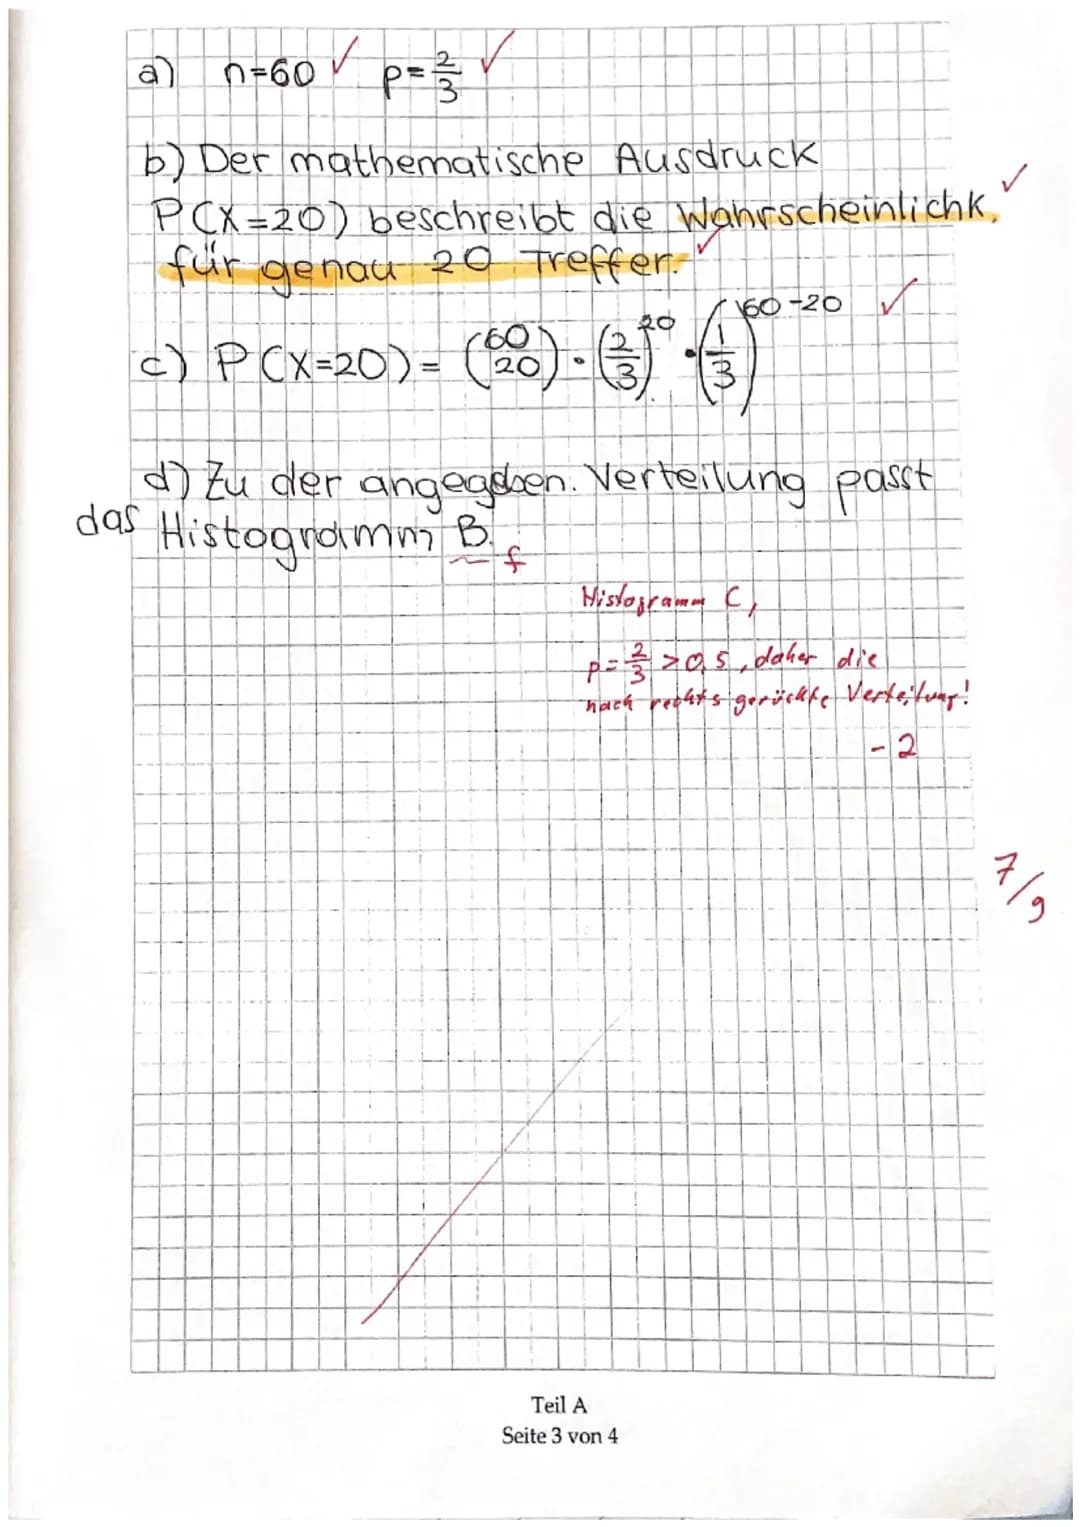 a) n=60 ✓ p=2/3 ✓
b) Der mathematische Ausdruck
P(X=20) beschreibt die Wahrscheinlichk. ✓
für genau 20 Treffer. ✓
c) P(X=20) = (60 20) · (2/3)^20 · (1/3)^60-20 ✓
d) Zu der angegeben. Verteilung passt
das Histogramm B.
~ f
Histogramm C,
p=2/3 >0,5, daher die
nach rechts gerückte Verteilung!
-2
7/9
Teil A
Seite 3 von 4